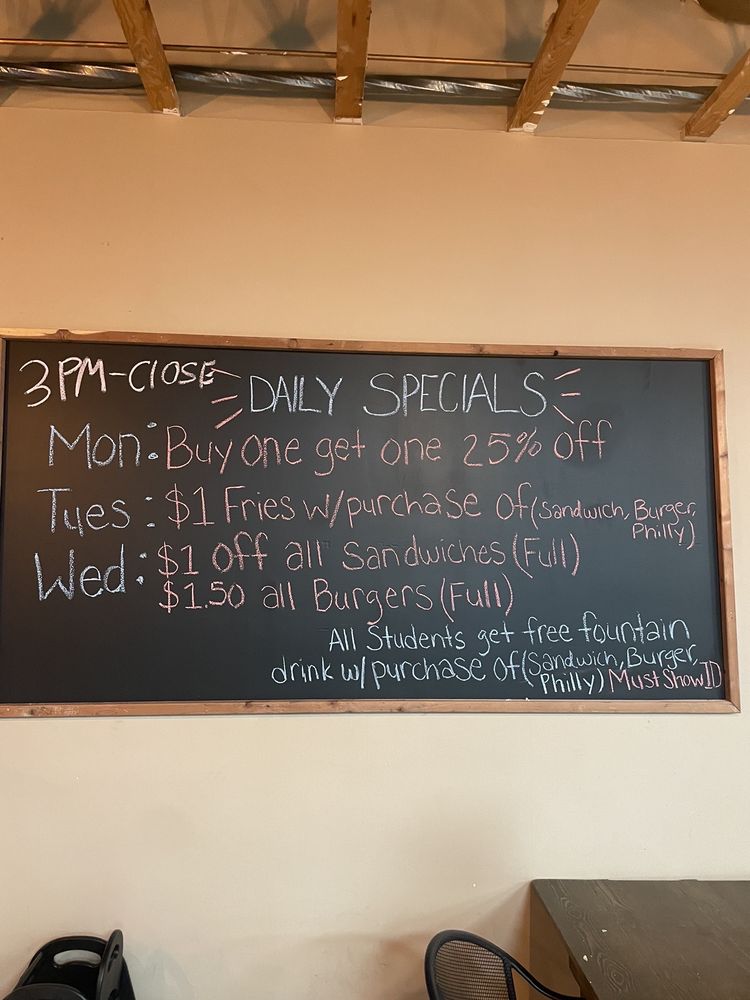 3PM-ClOSE
DAILY SPECIALS
Mon: Buy one get one 25% off
Tues: $1 Fries w/purchase of (Sandwich, Burger,
Philly)
Wed: $1 off all Sandwiches (Full)
$1.50 all Burgers (Full)
All Students get free fountain
drink w/purchase of (Sandwich, Burger,
Philly) Must Show ID